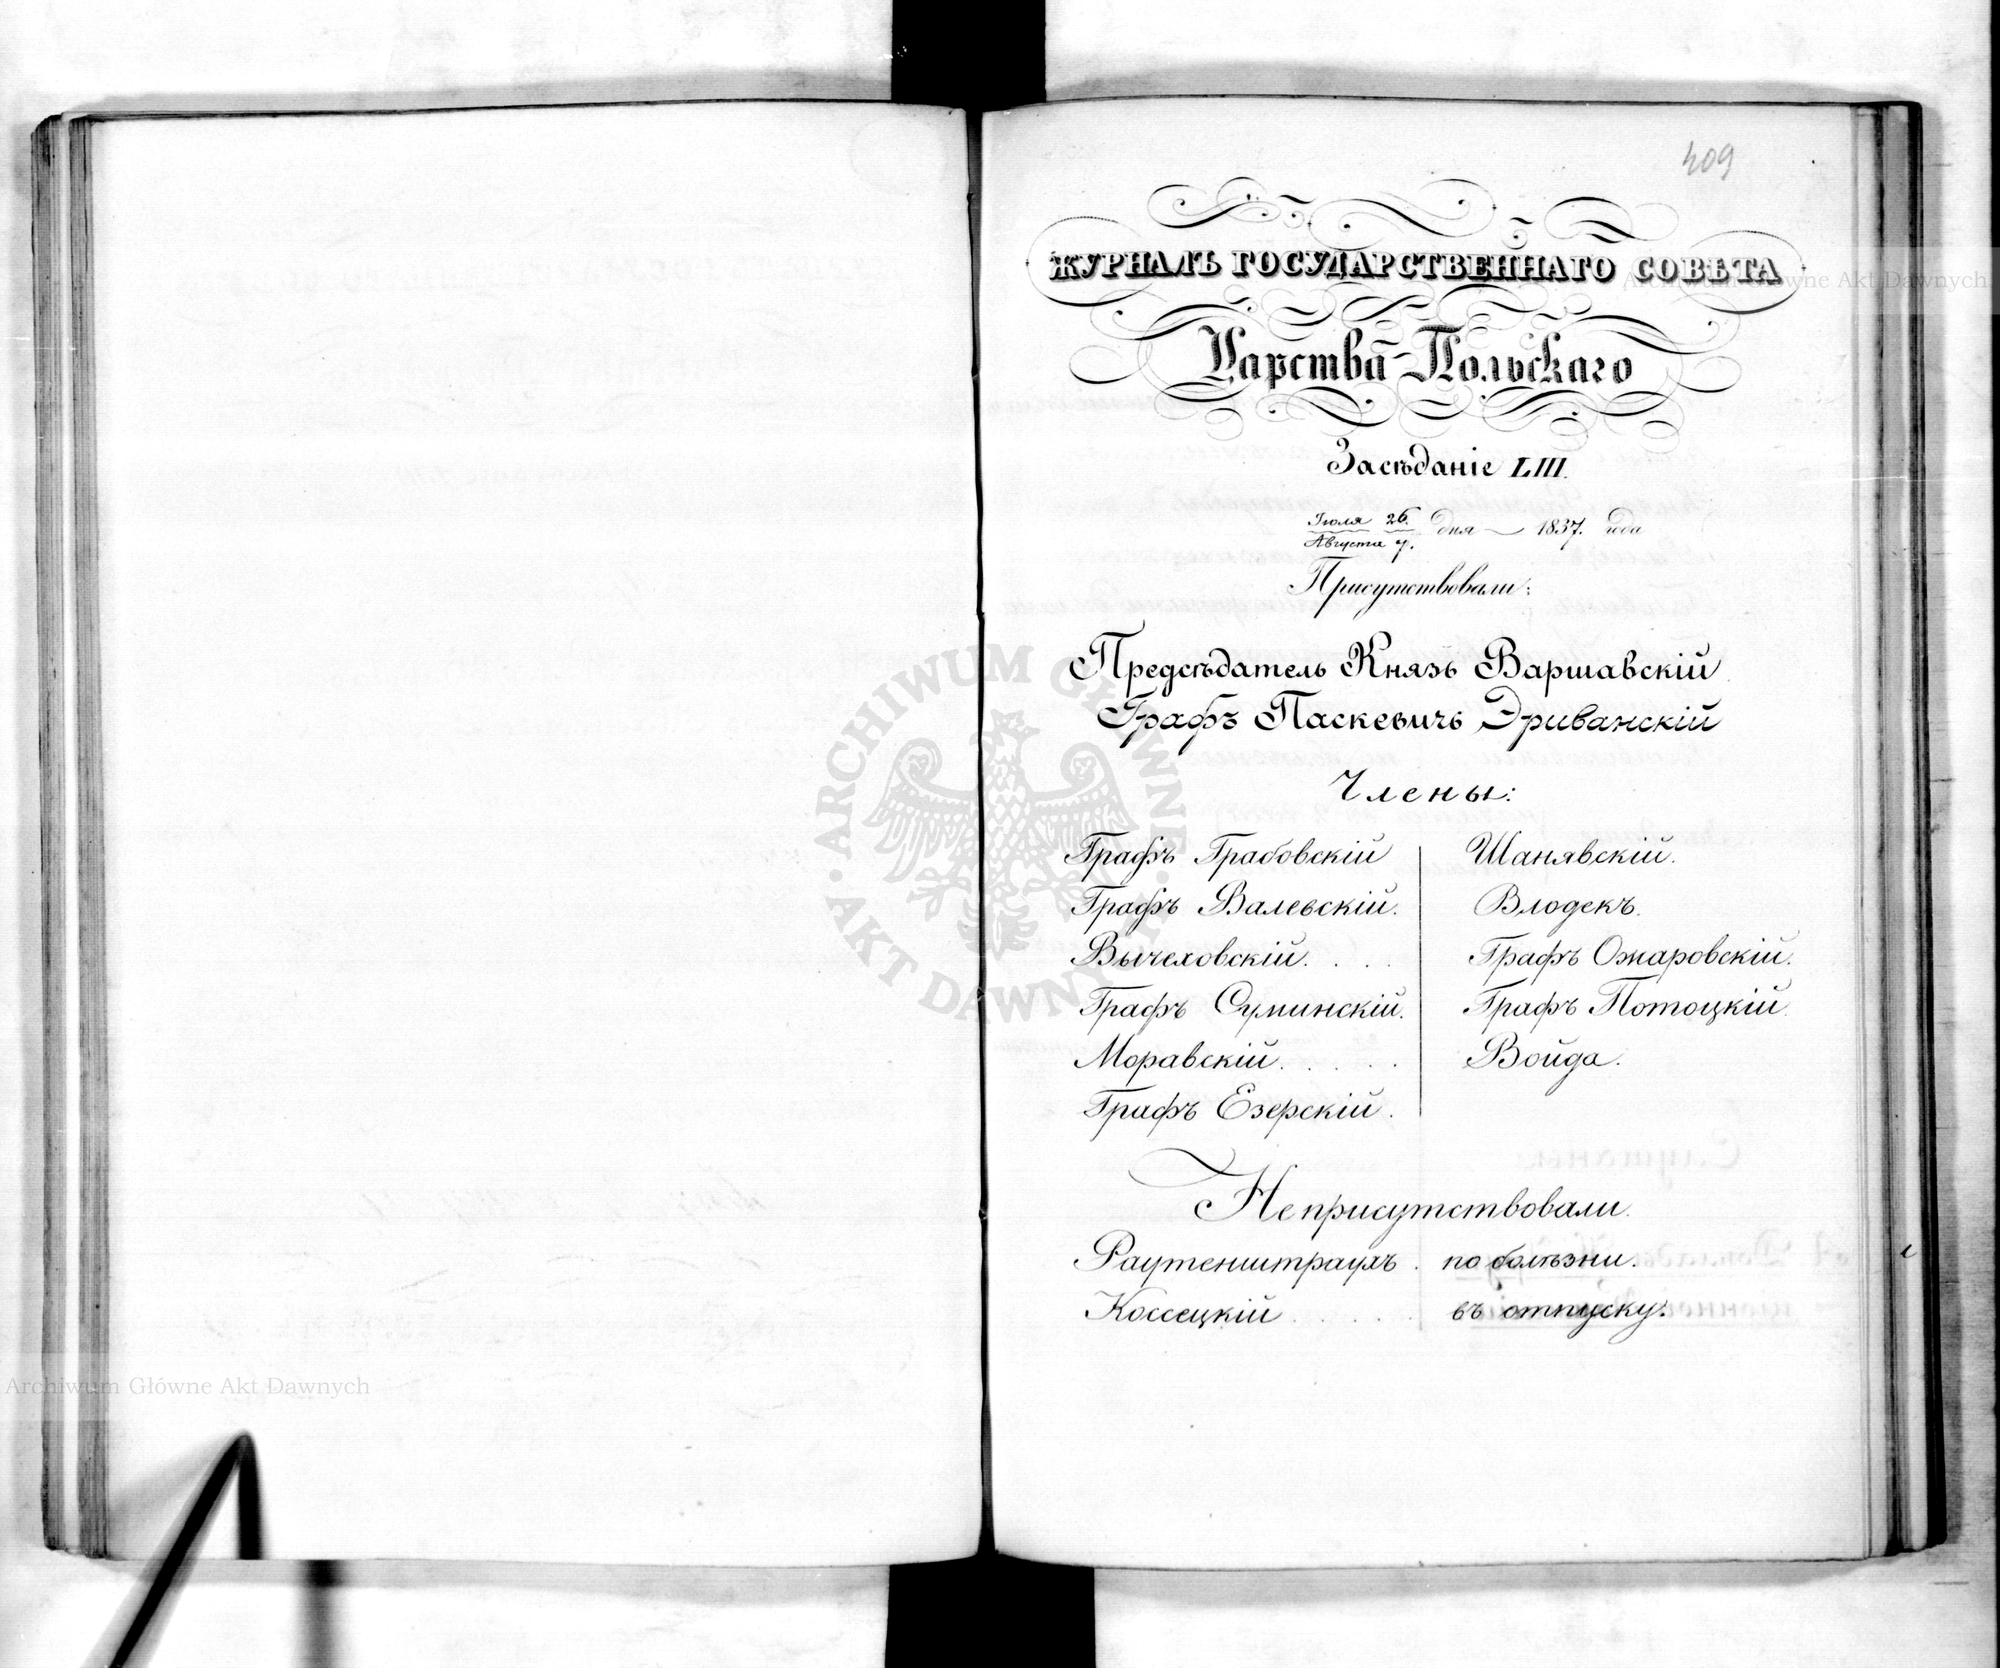 409
ЖУРНАЛЪ ГОСУДАРСТВЕННАГО СОВѢТА
Царства Польскаго
Засѣданіе LIII.
Іюля 26. / Августа 7. дня 1837. года
Присутствовали:
Предсѣдатель Князь Варшавскій
Графъ Паскевичь Эриванскій
Члены:
Графъ Грабовскій
Графъ Валевскій.
Вычеховскій. . . .
Графъ Суминскій.
Моравскій. . . . .
Графъ Езерскій.
Шанявскій.
Влодекъ.
Графъ Ожаровскій.
Графъ Потоцкій.
Войда.
Неприсутствовали.
Раутенштраухъ . по болѣзни.
Коссецкій . . . . . въ отпуску.
ARCHIWUM GŁÓWNE AKT DAWNYCH
Archiwum Główne Akt Dawnych
Archiwum Główne Akt Dawnych